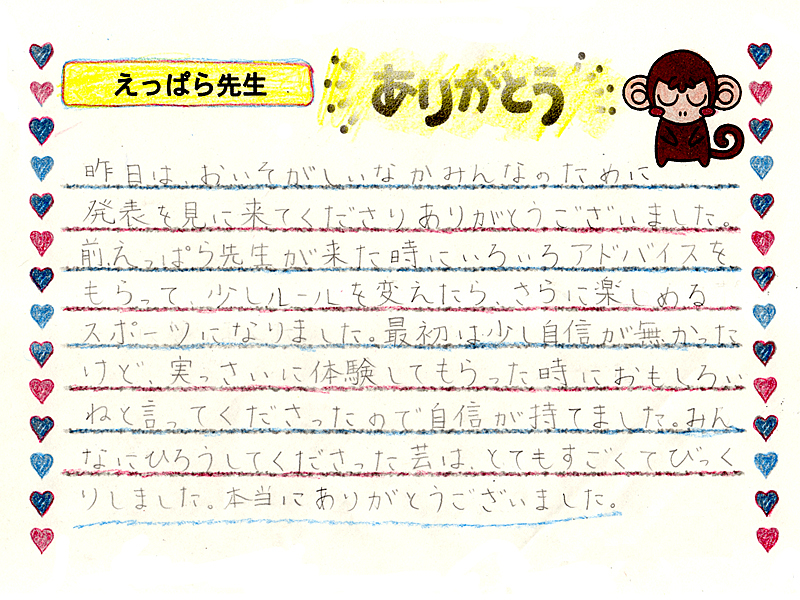 えっぱら先生
ありがとう
昨日は、おいそがしいなかみんなのために
発表を見に来てくださりありがとうございました。
前、えっぱら先生が来た時にいろいろアドバイスを
もらって、少しルールを変えたら、さらに楽しめる
スポーツになりました。最初は少し自信が無かった
けど、実っさいに体験してもらった時におもしろい
ねと言ってくださったので自信が持てました。みん
なにひろうしてくださった芸は、とてもすごくてびっく
りしました。本当にありがとうございました。